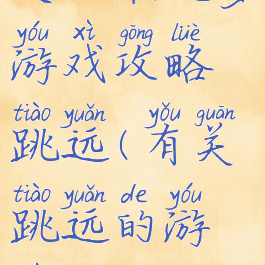 yóu xì gōng lüè
游戏攻略
tiào yuǎn yǒu guān
跳远(有关
tiào yuǎn de yóu
跳远的游